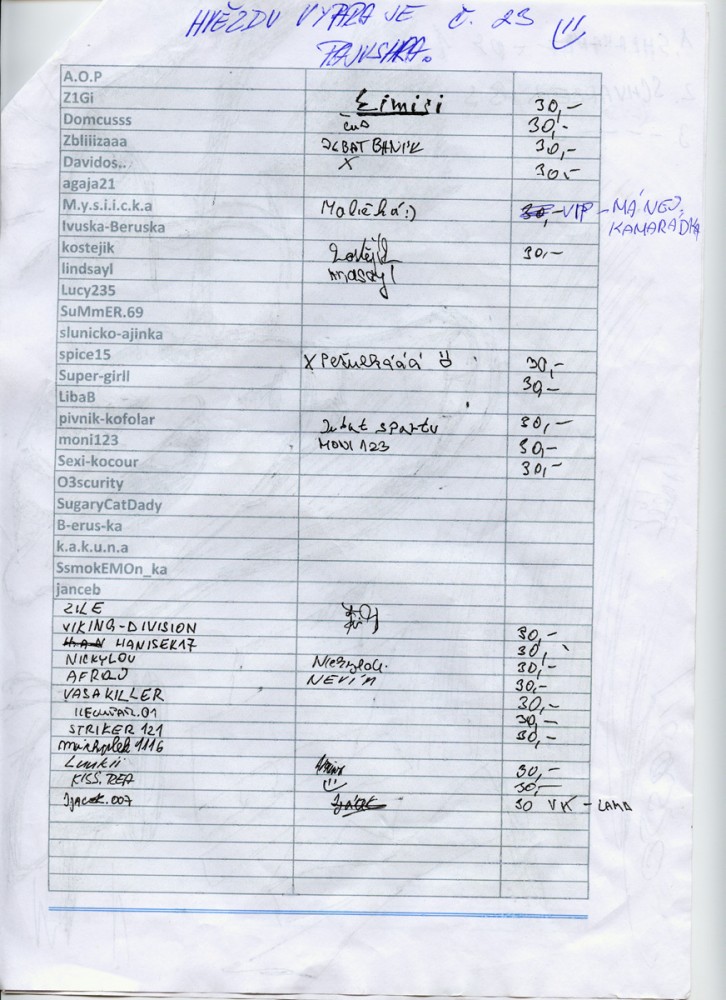 HVĚZDU VYHRAJE Č. 23
A.O.P
Z1Gi Eimiii 30,-
Domcusss čus 30,-
Zbliiizaaa JEBAT BANÍK 30,-
Davidos.. X 30,-
agaja21
M.y.s.i.i.c.k.a Malická:) 30,- VIP - MÁ NEJ.
Ivuska-Beruska KAMARÁDKA
kostejik 30,-
lindsayl
Lucy235
SuMmER.69
slunicko-ajinka
spice15 30,-
Super-girll 30,-
LibaB
pivnik-kofolar Jebat spartu 30,-
moni123 MONI 123 30,-
Sexi-kocour 30,-
O3scurity
SugaryCatDady
B-erus-ka
k.a.k.u.n.a
SsmokEMOn_ka
janceb
ZILE
VIKING-DIVISION 30,-
HANISEK17 30,-
NICKYLOU 30,-
AFROU NEVÍM 30,-
VASAKILLER 30,-
30,-
STRIKER 121 30,-
Lunkii 30,-
KISS.TREA 30,-
30 VK - LAMA